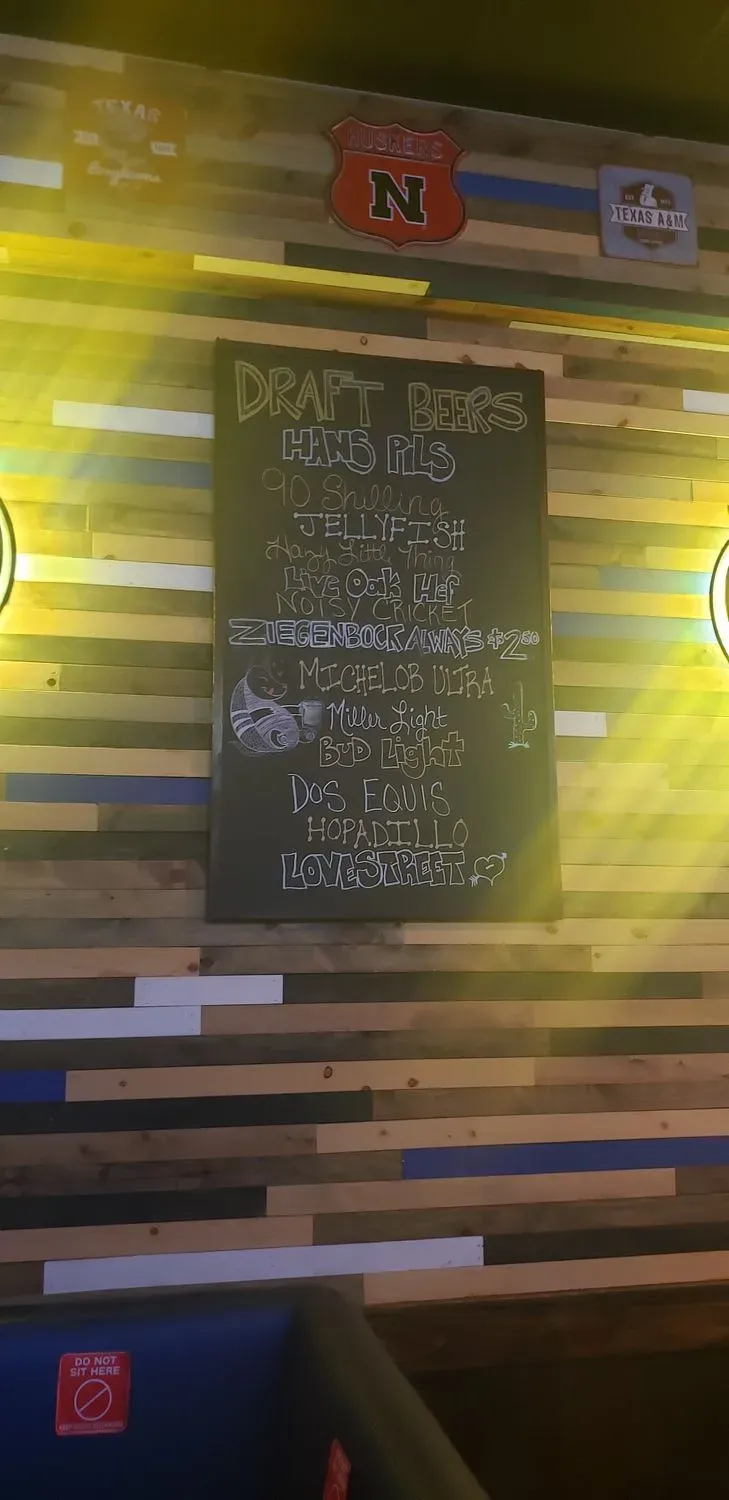 TEXAS
HUSKERS
N
EST
TEXAS A&M
DRAFT BEERS
HANS PILS
90 Shilling
JELLYFISH
Hazy Little Thing
Live Oak Hef
NOISY CRICKET
ZIEGENBOCK ALWAYS $2.50
MICHELOB ULTRA
Miller Light
BUD Light
DOS EQUIS
HOPADILLO
LOVESTREET
DO NOT
SIT HERE